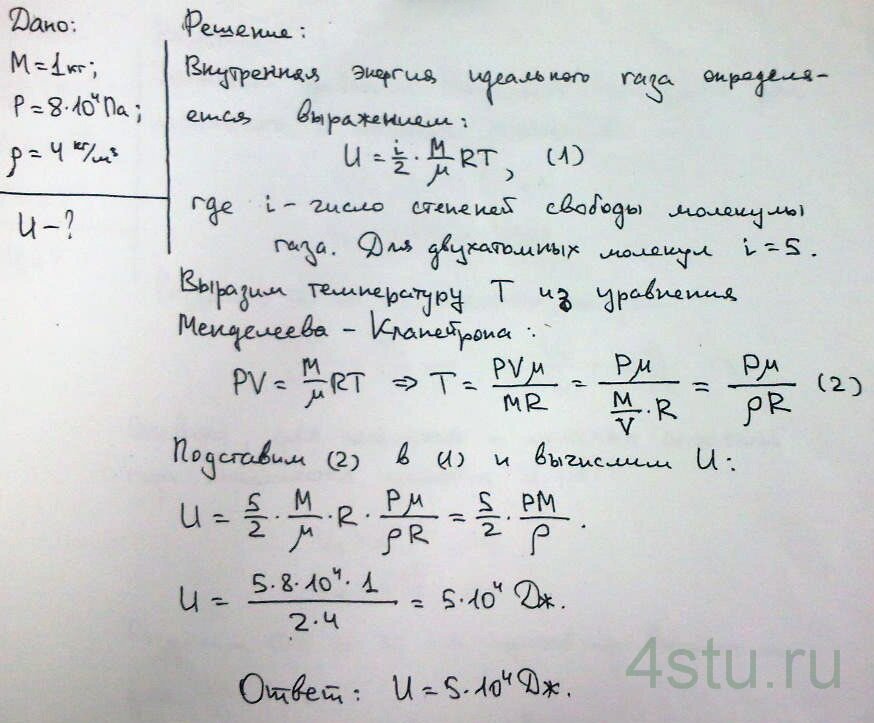 Дано:
M = 1 кг;
P = 8·10⁴ Па;
ρ = 4 кг/м³
U - ?
Решение:
Внутренная энергия идеального газа определя-
ется выражением:
U = i/2 · M/μ RT, (1)
где i - число степеней свободы молекулы
газа. Для двухатомных молекул i = 5.
Выразим температуру T из уравнения
Менделеева - Клапейрона:
PV = M/μ RT ⇒ T = PVμ/MR = Pμ/(M/V · R) = Pμ/ρR (2)
Подставим (2) в (1) и вычислим U:
U = 5/2 · M/μ · R · Pμ/ρR = 5/2 · PM/ρ.
U = 5·8·10⁴·1/2·4 = 5·10⁴ Дж.
Ответ: U = 5·10⁴ Дж.
4stu.ru